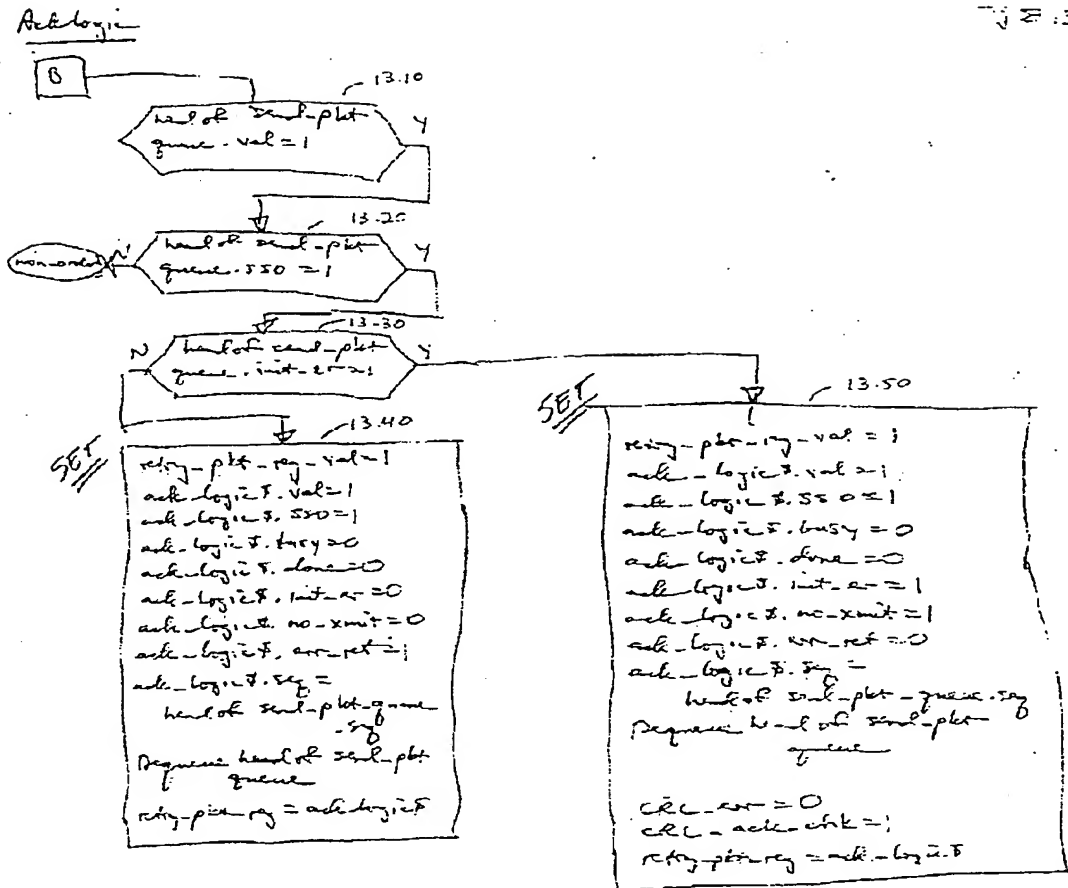 Ack Logic
B
13.10
head of send-pkt
queue.val=1
Y
13.20
head of send-pkt
queue.sso=1
Y
N
non-order
13-30
head of send-pkt
queue.init-er=1
N
Y
SET
13.40
retry_pkt_reg_val=1
ack-logic$.val=1
ack-logic$.sso=1
ack-logic$.busy=0
ack-logic$.done=0
ack-logic$.init-er=0
ack-logic$.no-xmit=0
ack-logic$.err-ret=1
ack-logic$.seq=
head of send-pkt-queue
.seq
Dequeue head of send-pkt
queue
retry-pkt-reg=ack-logic$
SET
13.50
retry-pkt-reg-val=1
ack-logic$.val=1
ack-logic$.sso=1
ack-logic$.busy=0
ack-logic$.done=0
ack-logic$.init-er=1
ack-logic$.no-xmit=1
ack-logic$.err-ret=0
ack-logic$.seq=
head of send-pkt-queue.seq
Dequeue head of send-pkt
queue
CRC_err=0
CRC-ack-chk=1
retry-pkt-reg=ack-logic$